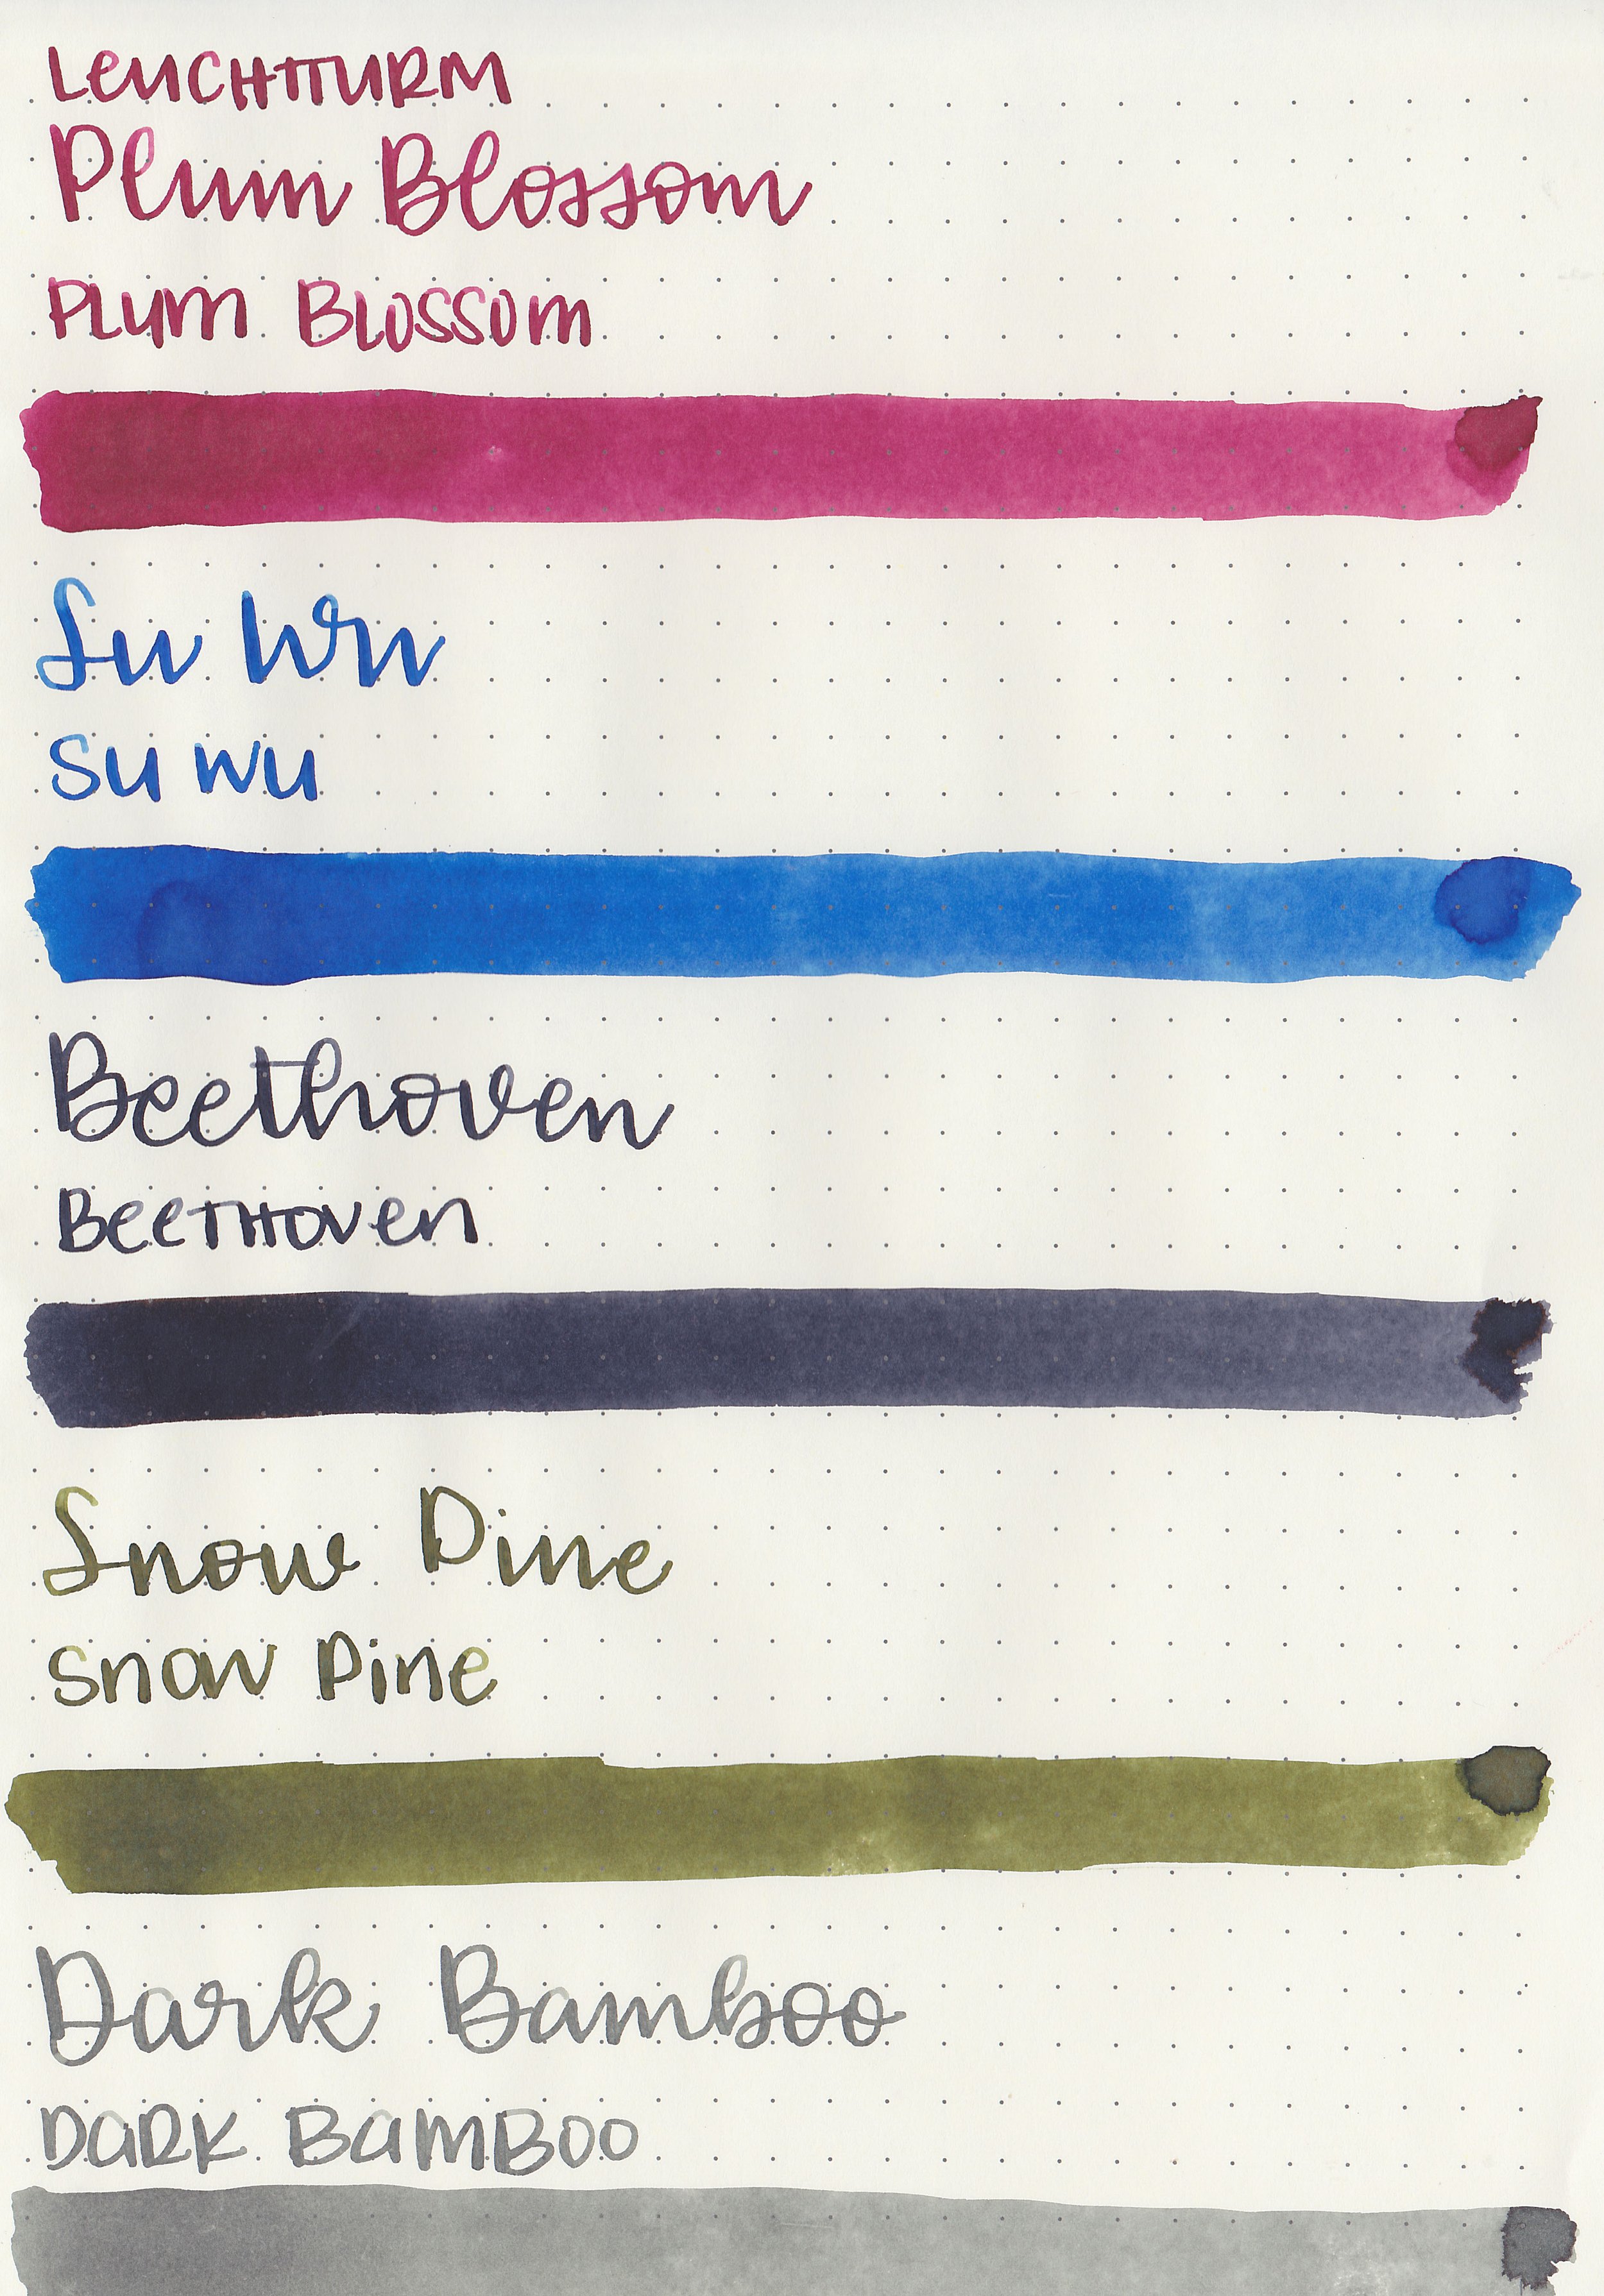 LeUCHTTURM
Plum Blossom
PLUM BLOSSOM
Su Wu
SU WU
Beethoven
BeeTHOVen
Snow Pine
Snow Pine
Dark Bamboo
DARK BAMBOO